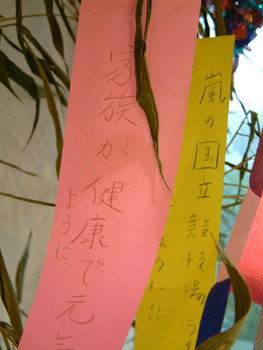 嵐の国立競技場ライ
ように!!
家族が健康で元気
ように